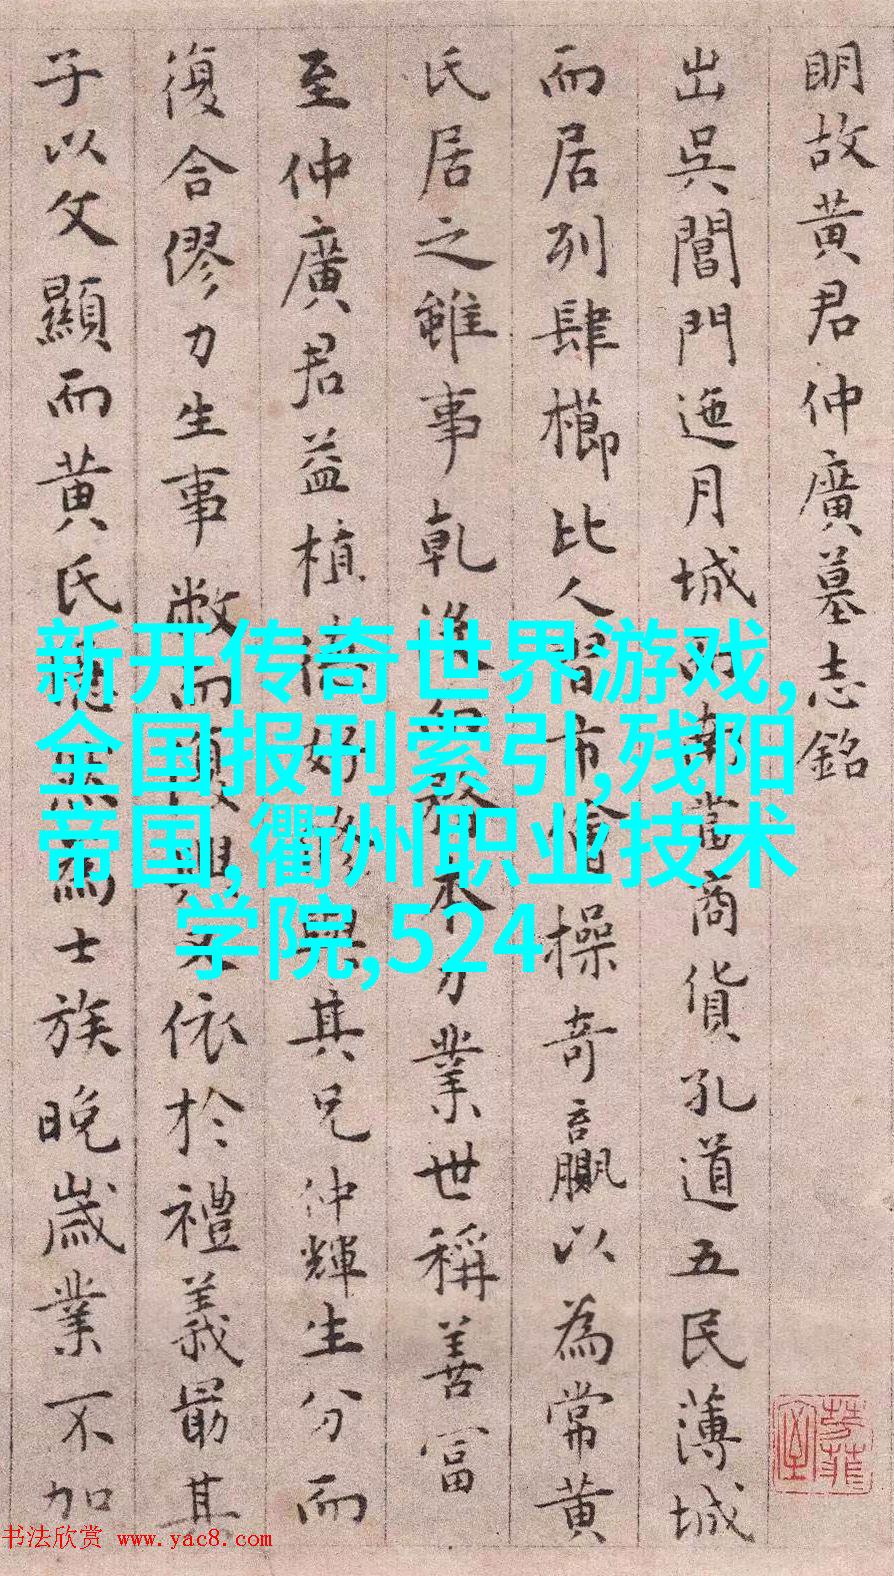 明故黃君仲廣墓志銘
出吳閶門迤月城而南當商貨孔道五民薄城
而居列肆櫛比人習市儈操奇贏以為常黃
氏居之雖事乾沒務本力業世稱善富
至仲廣君益植好修與其兄仲輝生分而
復合僇力生事敝而復興依於禮義最其
子以文顯而黃氏為士族晚歲業不加
新开传奇世界游戏,
全国报刊索引,残阳
帝国,衢州职业技术
学院,524
书法欣赏 www.yac8.com